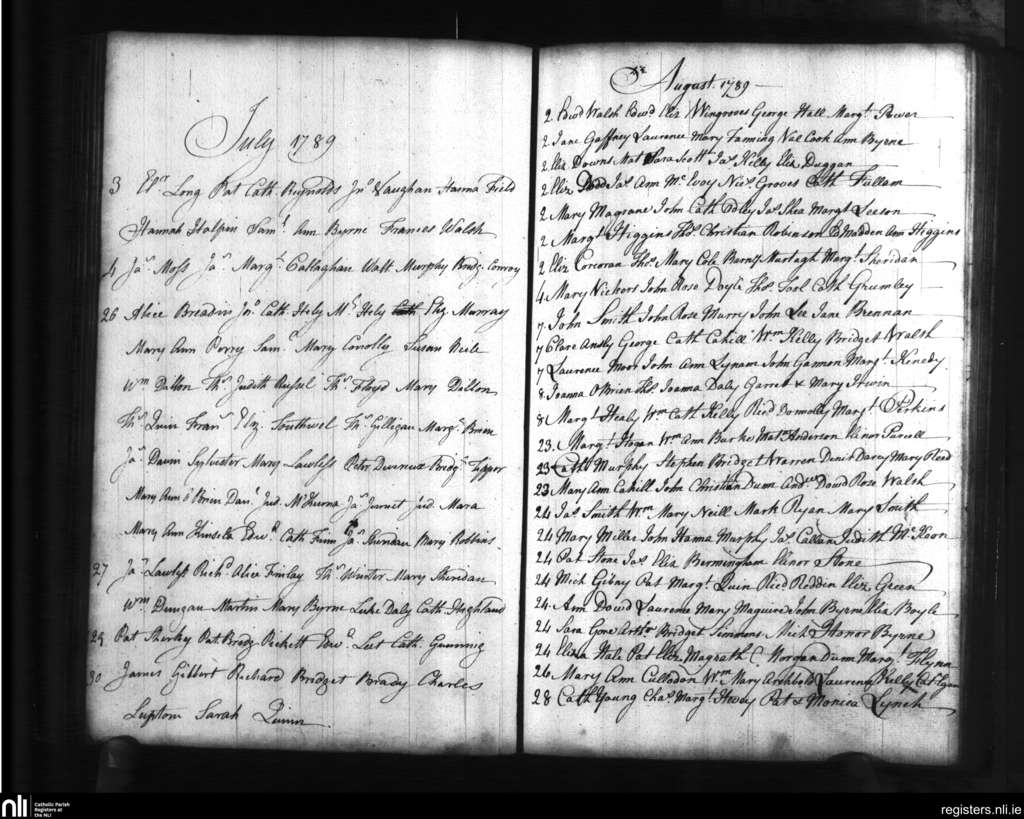 July 1789
3 Elr. Long Pat Cath. Reynolds Jno. Vaughan Hanna Field
Hannah Halpin Saml. Ann Byrne Frances Walsh
4 Jas. Moss Jas. Margt. Callaghan Walt. Murphy Bridg. Conroy
26 Alice Breadin Jno. Cath. Hely Ml. Hely Eliz Murray
Mary Ann Perry Saml. Mary Conolly Susan
Wm. Dalton Ths. Judith Russel Ths. Floyd Mary Dalton
Ths. Quin Fran Eliz. Southwel Ths. Gilligan Marg. Brien
Jas. Daum Sylvester Mary Lawless Peter Devereux Bridg.
Mary Ann O'Brien Danl. Jud. McKurna Jas. Jurnet Jud. Mara
Mary Ann Kinsela Edwd. Cath Finn Jas. Sheridan Mary Robbins
27 Jas. Lawless Richd. Alice Finlay Ths. Winter Mary Sheridan
Wm. Dungan Martin Mary Byrne Luke Daly Cath. Highland
29 Pat Sherky Pat Bridg Peckett Edwd. Lest Cath. Gunning
30 James Gibbert Richard Bridget Brady Charles
Lupton Sarah Quinn
August 1789
2 Edwd Walsh Edwd Eliz Wingroves George Hall Margt. Power
2 Jane Gaffney Laurence Mary Fanning Nae Cook Ann Byrne
2 Eliz Downs Mat Sara Scott Jas. Kelly Eliz Duggan
2 Eliz Dodd Jas. Ann McEvoy Nics. Groves Cath Fullam
2 Mary Magrane John Cath Doley Jas. Shea Margt Leeson
2 Margt. Higgins Ths. Christian Robinson P. Madden Ann Higgins
2 Eliz Corcoran Thos. Mary Cole Barny Murtagh Marg. Sheridan
4 Mary Vickors John Rose Doyle Thos. Tool Cath Grumley
7 John Smith John Rose Murry John Lee Jane Brennan
7 Clare Ansly George Cath Cahill Wm. Kelly Bridget Walsh
7 Laurence Moor John Ann Lynam John Gannon Margt. Kenedy
8 Joanna OBrien Ths. Joanna Daly Garrett & Mary Irwin
8 Margt Healy Wm Cath Kelly Ricd Donnolly Margt. Perkins
23 Margt. Hogan Wm Ann Burke Matw Anderson Elinor Purcell
23 Cath Murphy Stephen Bridget Warren Denis Darcy Mary Reed
23 Mary Ann Cahill John Christian Dunn Andw Dowd Rose Walsh
24 Jas Smith Wm Mary Neill Mark Ryan Mary Smith
24 Mary Miller John Hanna Murphy Jas. Callan Judith McKoon
24 Pat Stone Jas. Eliz Bermingham Elenor Stone
24 Mich Gibny Pat Margt. Quin Ricd Reddin Eliz Green
24 Ann Dowd Laurence Mary Maguire John Byrne Eliz Boyle
24 Sara Gore Arthr. Bridget Simmons Mich. Honor Byrne
24 Eliza Hale Pat Eliz Magrath C. Morgan Dunn Margt. Flynn
26 Mary Ann Culledon Wm. Mary Archbold Laurence Kelly
28 Cath Young Chas. Margt. Hevey Pat & Monica Lynch
nli
Catholic Parish
Registers at
the NLI
registers.nli.ie